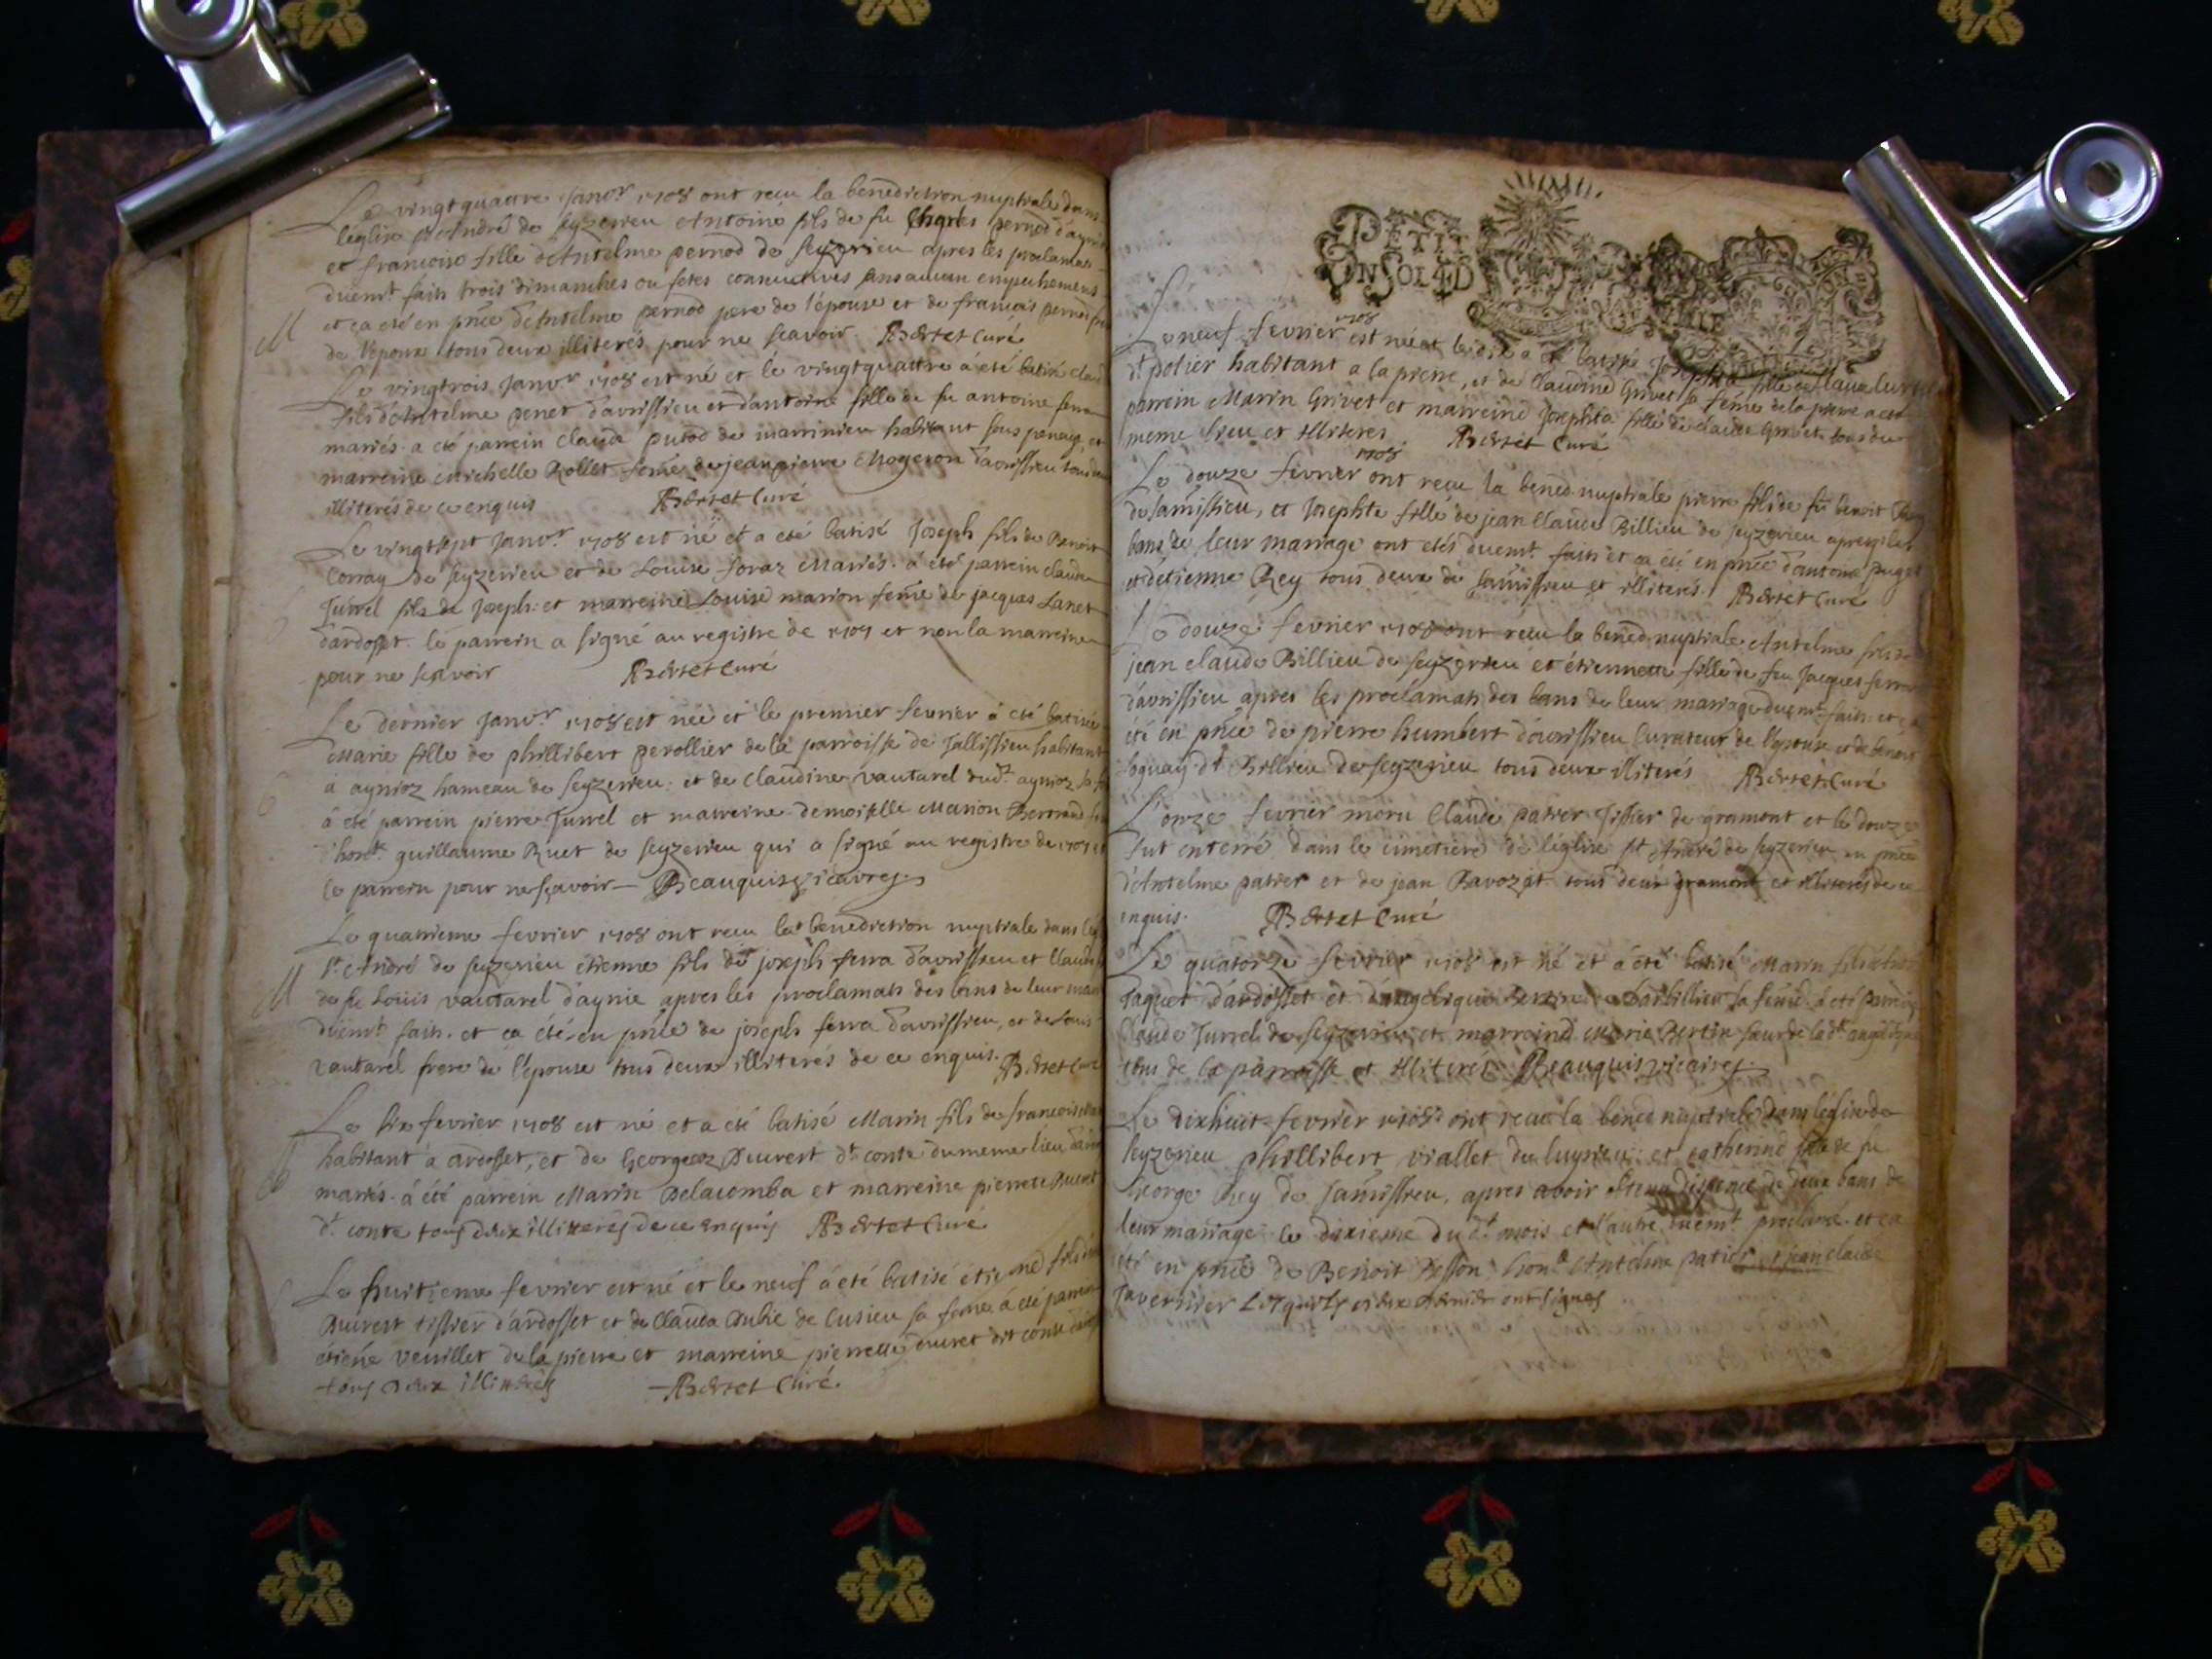 Le vingtquattre Janvr 1708 ont reçu la benediction nuptiale dans
léglise st André de seyzerieu Antoine fils de fu Charles pernod d'aynie
et francoise fille d'Antelme pernod de seyzerieu apres les proclamats
duemt faits trois dimanches ou fetes consecutives sans aucun empechemens
et ça eté en pñce d'Antelme pernod pere de l'épouse et de françois pernod
de l'époux tous deux illiterés pour ne scavoir Bertet Curé
M
Le vingtrois Janvr 1708 est né et le vingtquattre à été batisé
fils d'Antelme penet d'avrissieu et d'antoine fille de fu antoine
mariés a eté parrein claude putod de marinieu habitant sous et
marreine michelle Rollet feme de jeanpierre Mogeron d'avrissieu tous
illiterés de ce enquis Bertet Curé
Le vingtsept Janvr 1708 est né et a eté batisé Joseph fils de Benoit
Corray de seyzerieu et de Louise foraz Mariés. a été parrein claude
Jurrel fils de Joseph et marreine Louise marion feme de jacques Lanet
d'ardosset le parrein a signé au registre de 1707 et non la marreine
pour ne scavoir Bertet Curé
Le dernier Janvr 1708 est née et le premier fevrier a eté batisée
Marie fille de phillibert perollier de la parroisse de Tallissieu habitant
à aynioz hameau de seyzerieu et de Claudine vautarel dudt aynioz
à eté parrein pierre Jurrel et marreine demoiselle Marion Bertrand
guillaume Ruet de seyzerieu qui a signé au registre de 1707
le parrein pour ne sçavoir Beauquis vicaire
Le quatrieme fevrier 1708 ont reçu la benediction nuptiale dans
st André de seyzerieu étienne fils de joseph ferra d'avrissieu et Claude
de fu Louis vautarel d'aynie apres les proclamats des bans de leur
duemt faits. et ça été en pñce de joseph ferra d'avrissieu, et de Louis
vautarel frere de l'épouse tous deux illiterés de ce enquis. Bertet Curé
M
Le six fevrier 1708 est né et a eté batisé Marin fils de francois
habitant à ardosset, et de Georgeoz Duvrest dt conte du meme lieu
mariés. à été parrein Marin Delacomba et marreine pierrete
dt conte tous deux illitterés de ce enquis Bertet Curé
Le huitieme fevrier est né et le neuf à été batisé étiene fils
tissier d'ardosset et de Clauda de Cusieu sa feme à eté parrein
étiene veuillet de la pierre et marreine pierrette duvret dit conte
tous deux illitterés Bertet Curé.
PETIT
UN SOL 4 D
Le neuf fevrier 1708 est née et a eté batisé Josephta fille de Claude
dt potier habitant a la pierre, et de Claudine Grivet sa feme de la pierre a eté
parrein Marin Grivet et marreine Josephta fille de claude Grivet tous du
meme lieu et illiteres. Bertet Curé
Le douze fevrier 1708 ont reçu la bened. nuptiale pierre fils de fu benoit
de samissieu, et Josephte fille de jean Claude Billieu de seyzerieu apres les
bans de leur mariage ont etés duemt faits et ça été en pñce d'antoine
et d'étienne Rey tous deux de samissieu et illiterés. Bertet Curé
Le douze fevrier 1708 ont reçu la bened. nuptiale Antelme fils de
jean claude Billieu de seyzerieu et étiennette fille de feu Jacques
d'avrissieu apres les proclamats des bans de leur mariage duemt faits. et ça
été en pñce de pierre humbert d'avrissieu Curateur de l'épouse et de benoit
dt Billieu de seyzerieu tous deux illiterés Bertet Curé
L'onze fevrier moru Claude patier Tissier de gramont et le douze
fut enterré dans le cimetiere de léglise st André de seyzerieu en pñce
d'Antelme patier et de jean Ravozet tous deux gramont et illiterés de ce
enquis. Bertet Curé
Le quatorze fevrier 1708 est né et a été batisé Marin fils
Jaquet d'ardosset et d'angelique Bertin sa feme. à eté parrein
Claude Jurrel de seyzerieu et marreine Marie Bertin seur de ladt angelique
tous de la parroisse et illiterés Beauquis vicaire
Le dixhuit fevrier 1708 ont reçu la bened nuptiale dans léglise de
seyzerieu phillibert viallet de luyrieu et catherine fille de fu
George Rey de samissieu, apres avoir obtenu dispence de deux bans de
leur mariage le dixieme du dt mois et l'autre duemt proclamé. et ça
été en pñce de Benoit Besson, Antelme patier, et jean claude
Tavernier lesquels deux dernier ont signés